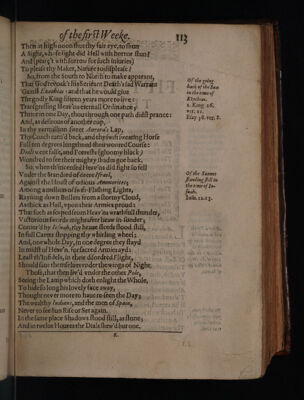 of the first Weeke.
113
Then at high noon shut thy fair eye, to shun
A Sight, whose sight did Hell with horror stun?
And (pearç't with sorrow for such injuries)
To please thy Maker, Nature to displease?
So, from the South to North to make apparant,
That God revoak't his Serieant Death's sad Warrant
'Gainst Ezechias: and that he would giue
The godly King fifteen years more to liue:
Transgressing Heav'ns eternall Ordinance,
Thrice in one Day, thou through one path didst prance:
And, as desirous of another nap,
In thy vermillion sweet Aurora's Lap,
Thy Coach turn'd back, and thy swift sweating Horse
Full ten degrees lengthned their wonted Course:
Dials went false, and Forrests (gloomy black)
Wondred to see their mighty shades goe back.
So, when th'incensed Heav'ns did fight so fell
Under the Standard of deere Israel,
Against the Hoast of odious Ammorites;
Among a million of swift Flashing Lights,
Rayning down Bullets from a stormy Cloud,
As thick as Hail, vpon their Armies proud:
That such as scaped from Heav'ns wrath
Victorious Swords might after heaw in-sunder;
Coniur'd by Iosuah, thy braue steeds stood still,
In full Career stopping thy whirling wheel;
And, one whole Day, in one degree they stayd
In midst of Heav'n, for sacred Armies ayd:
Least th'Infidels, in their disordred Flight,
Should saue themselues vnder the wings of Night.
Those, that then liv'd vnder the other Pole,
Seeing the Lamp which doth enlight the Whole,
To hide so long his lovely face away,
Thought never more to haue re-seen the Day;
The wealthy Indians, and the men of Spain,
Never to see Sun Rise or Set again.
In the same place Shadows stood still, as stone;
And in twelue Houres the Dials shew'd but one.
Of the going
back of the Sun
in the time of
Ezechias.
2. King. 26.
ver. 11.
Esay 38. ver. 8.
Of the Sunnes
standing still in
the time of Io-
suah.
Iosu. 10.13.